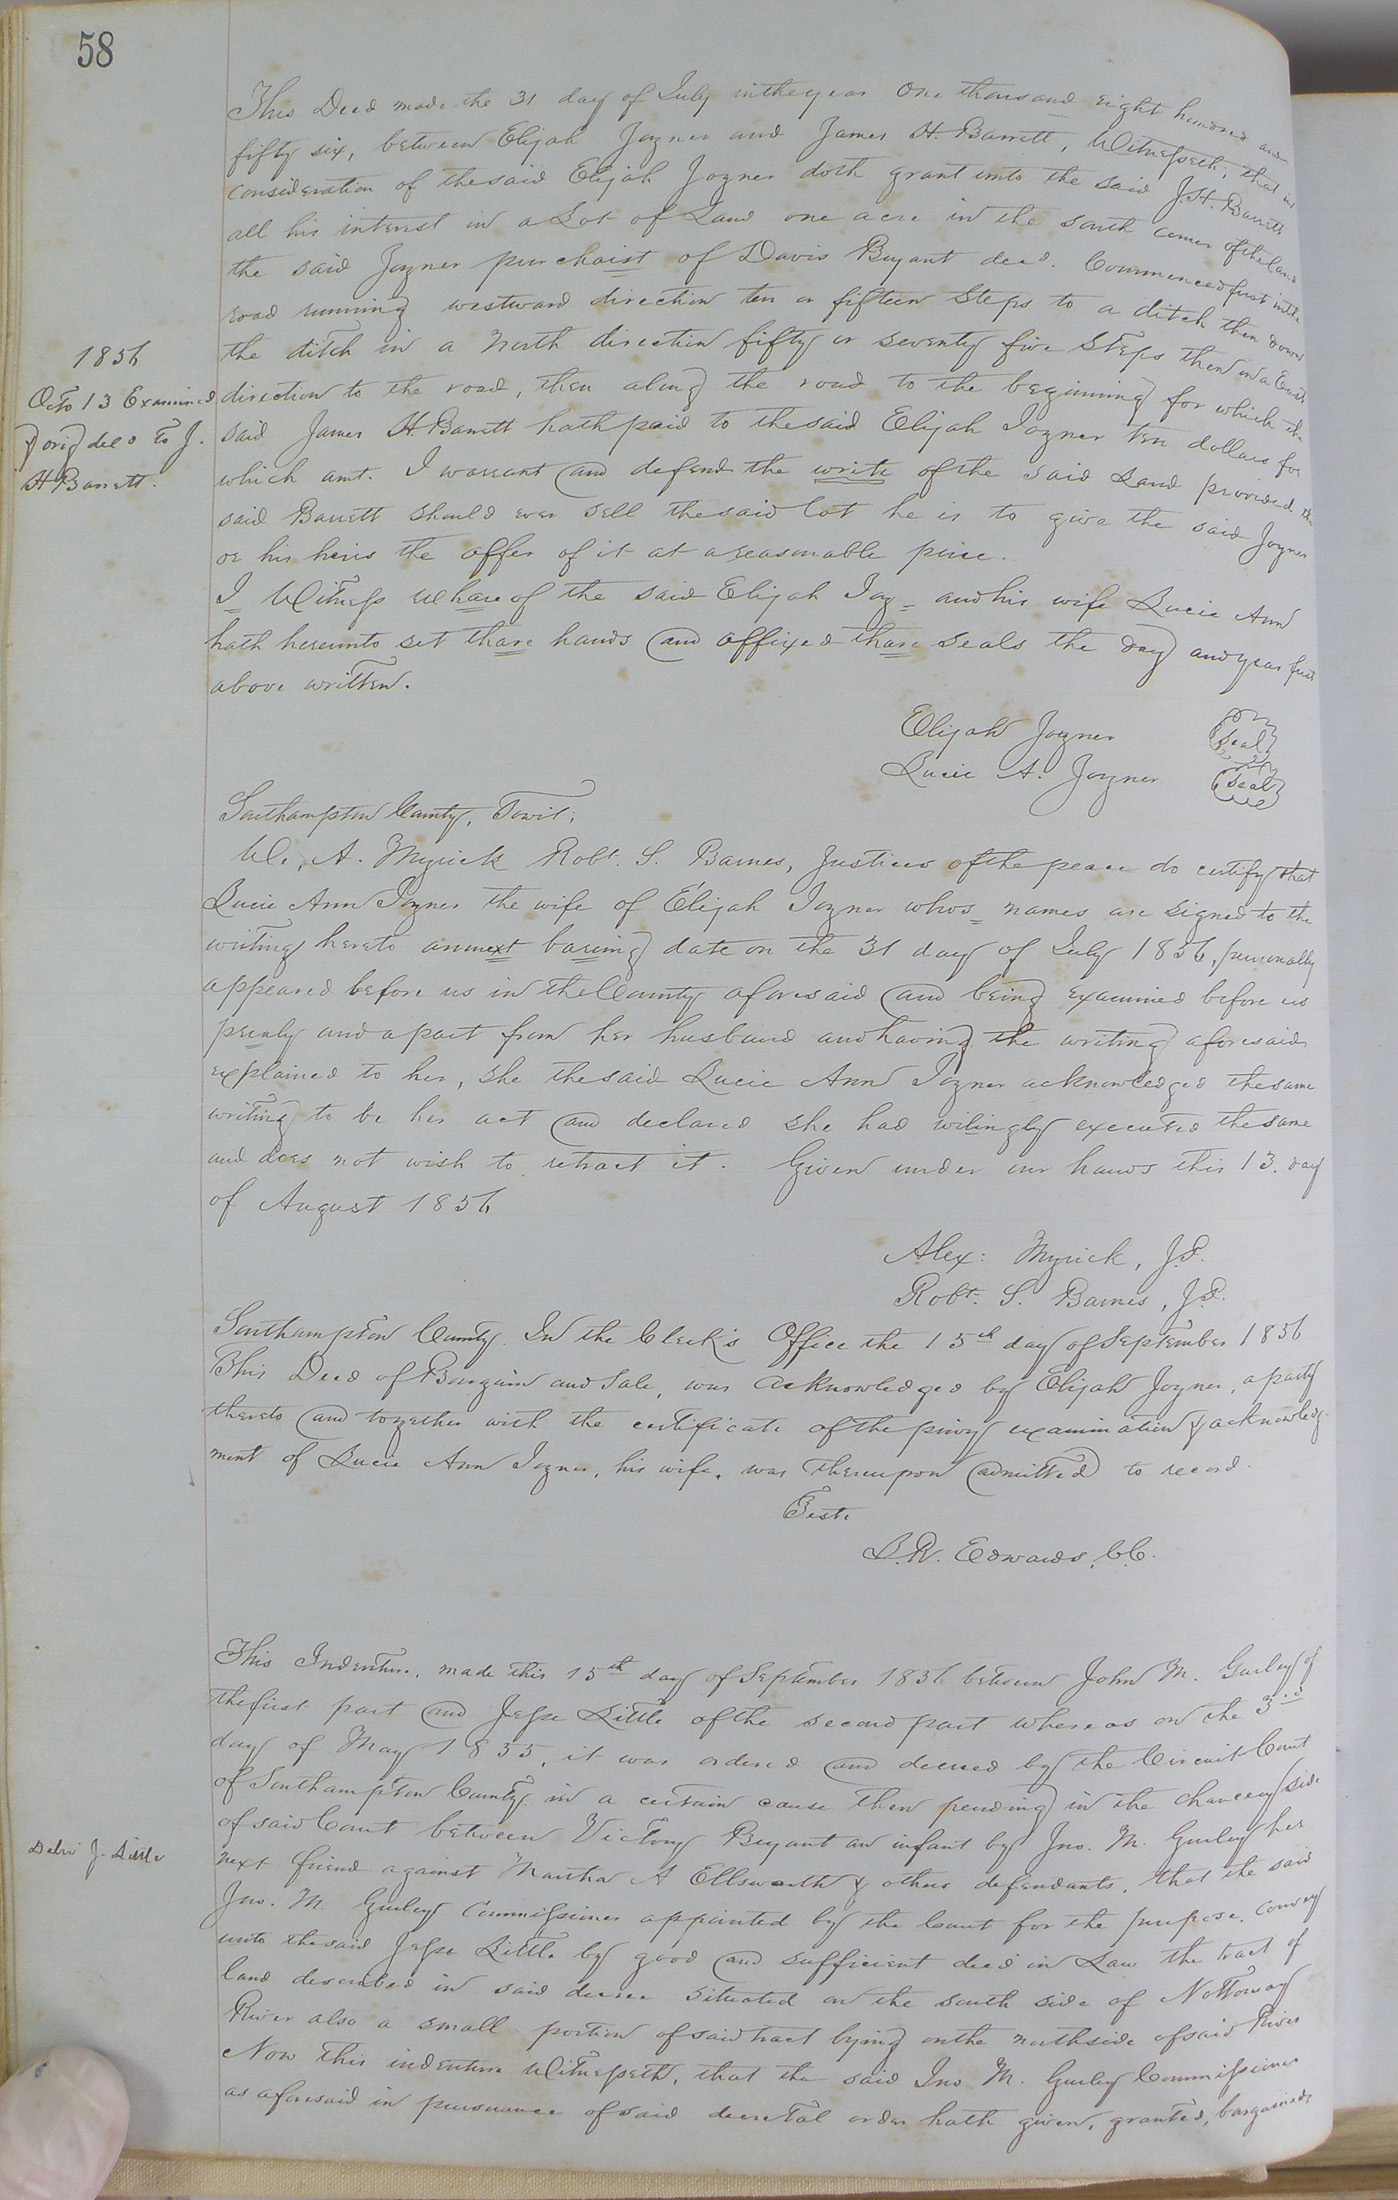 58
This Deed made the 31 day of July in the year One thousand eight hundred and
fifty six, between Elijah Joyner and James H. Barrett, Witnesseth, that in
consideration of the said Elijah Joyner doth grant unto the said J.H. Barrett
all his interest in a Lot of Land one acre in the south corner of the land
the said Joyner purchaist of Davis Bryant decd. Commenced first in the
road running westward direction ten or fifteen steps to a ditch then down
the ditch in a North direction fifty or seventy five steps then in a East
direction to the road, then along the road to the beginning for which the
said James H. Barrett hath paid to the said Elijah Joyner ten dollars for
which amt. I warrant and defend the write of the said Land provided the
said Barrett should ever sell the said lot he is to give the said Joyner
or his heirs the offer of it at a reasonable price.
I Witness whare of the said Elijah Joy_ and his wife Lucie Ann
hath hereunto set thare hands and affixed thare seals the day and year first
above written.
Elijah Joyner Seal
Lucie A. Joyner Seal
1856
Octo 13 Examined
& orig deed to J.
H Barrett.
Southampton County, Towit;
We, A. Myrick Robt. S. Barnes, Justices of the peace do certify that
Lucie Ann Joyner the wife of Elijah Joyner whos_ names are signed to the
writing hereto annext baring date on the 31 day of July 1856, personally
appeared before us in the County aforesaid and being examined before us
prealy and apart from her husband and having the writing aforesaid
explained to her, she the said Lucie Ann Joyner acknowledged the same
writing to be her act and declared she had wilingly executed the same
and does not wish to retract it. Given under our hands this 13. day
of August 1856
Alex: Myrick, J.P.
Robt. S. Barnes, J.P.
Southampton County. In the Clerk's Office the 15th day of September 1856
This Deed of Bargain and Sale, was acknowledged by Elijah Joyner, a party
thereto and together with the certificate of the privy examination & acknowledg-
ment of Lucie Ann Joyner, his wife, was thereupon admitted to record.
Teste
L.R. Edwards, C.C.
This Indenture, made this 15th day of September 1856 between John M. Gurley of
the first part and Jesse Little of the second part whereas on the 3rd
day of May 1855, it was ordered and decreed by the Circuit Court
of Southampton County in a certain cause then pending in the chancery side
of said Court between Victory Bryant an infant by Jno. M. Gurley her
next friend against Martha A Ellsworth & others defendants, that the said
Jno. M. Gurley Commissioner appointed by the Court for the purpose, convey
unto the said Jesse Little by good and sufficient deed in Law the tract of
land described in said decree situated on the south side of Nottoway
River also a small portion of said tract lying on the north side of said River
Now this indenture Witnesseth, that the said Jno M. Gurley Commissioner
as aforesaid in pursuance of said decretal order hath given, granted, bargained,
Deld J. Little